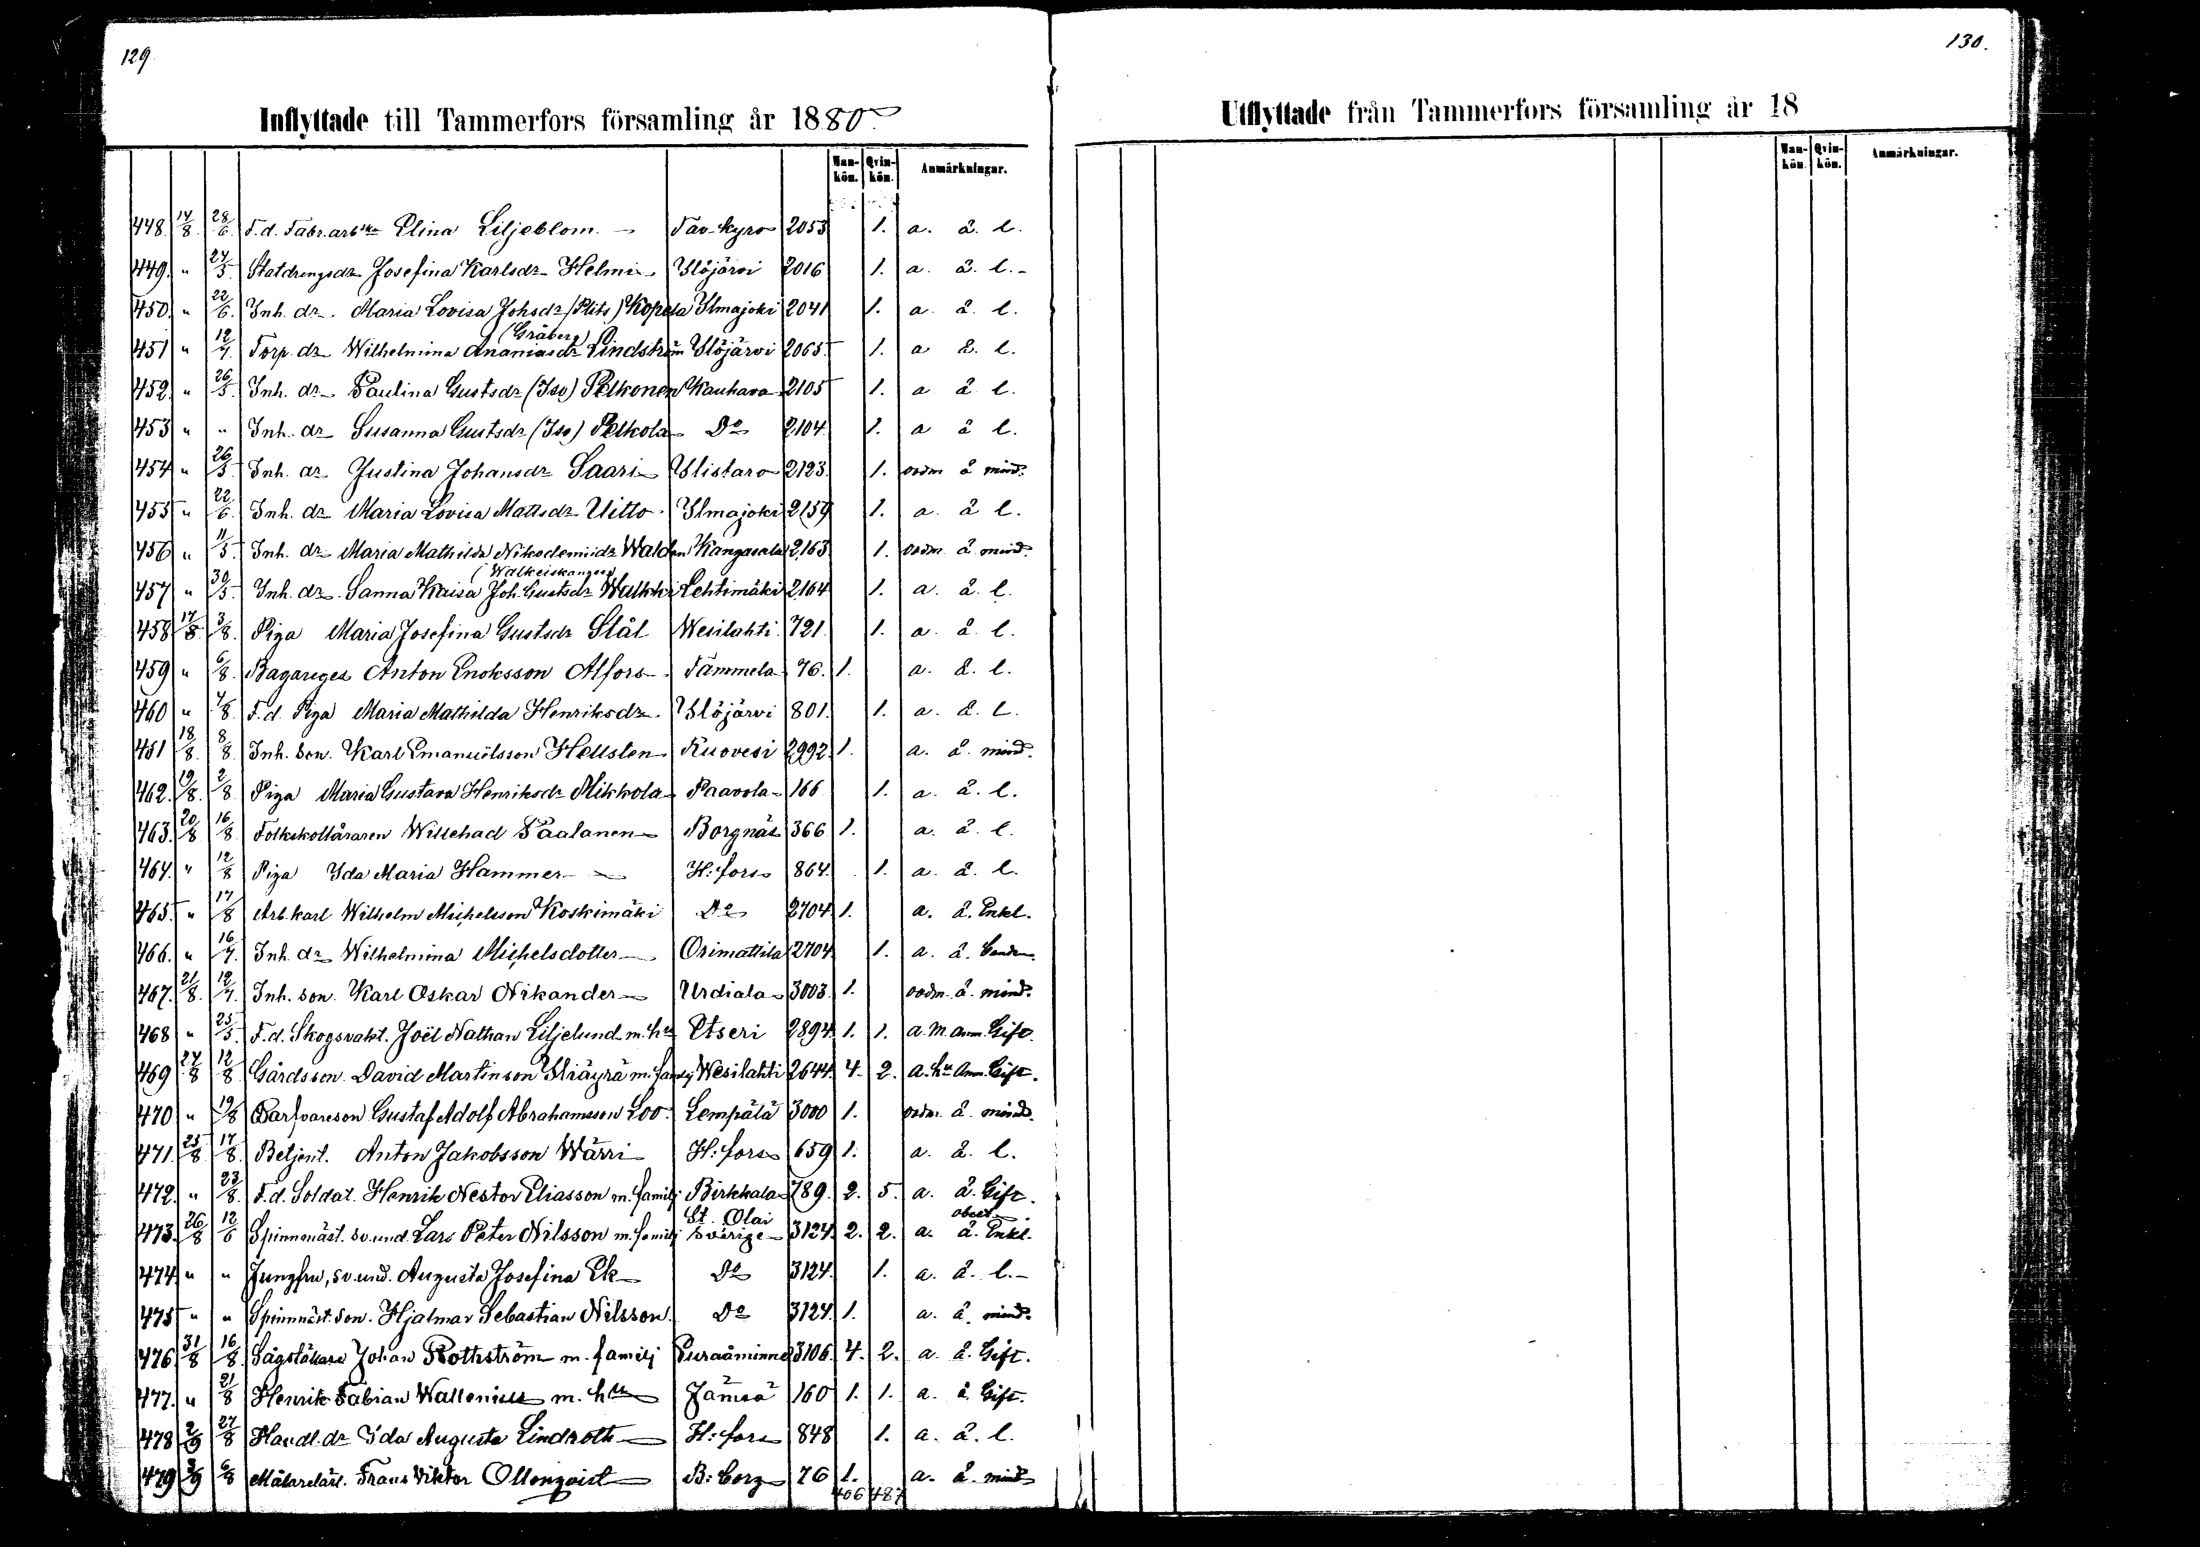 129.
Inflyttade till Tammerfors församling år 1880.
Mankön. Qvinkön. Anmärkningar.
448. 14/8. 28/6. F.d. Fabr.arb:ka Elina Liljeblom. Tav-kyro 2053 1. a. å. l.
449. " 24/5. Statdrengsdr Josefina Karlsdr Helmi Ylöjärvi 2016 1. a. å. l.
450. " 22/6. Inh. dr. Maria Lovisa Johsdr (Plits) Kopela Ylmajoki 2041 1. a. å. l.
(Gråberg)
451 " 12/7. Torp. dr Wilhelmina Ananiasdr Lindström Ylöjärvi 2065. 1. a å. l.
452. " 26/5. Inh. dr Paulina Gustsdr (Iso) Pelkonen Kauhava 2105 1. a å l.
453 " " Inh. dr Susanna Gustsdr (Iso) Pelkola Do 2104. 1. a å l.
454 " 26/5. Inh. dr Justina Johansdr Saari Ylistaro 2123. 1. oadm å mind.
455 " 22/6. Inh. dr Maria Lovisa Mattsdr Uitto Ylmajoki 2159 1. a. å l.
456 " 11/5. Inh. dr Maria Mathilda Nikodemidr Walden Kangasala 2163 1. oadm å mind.
(Walkeiskangas)
457 " 30/5. Inh. dr. Sanna Kaisa Joh. Gustsdr Walkki Lehtimäki 2164 1. a. å. l.
458 17/8. 3/8. Piga Maria Josefina Gustsdr Stål Wesilahti 721. 1. a. å. l.
459 " 6/8. Bagareges Anton Enoksson Alfors Tammela 76. 1. a. å. l.
460 " 4/8. F.d. Piga Maria Mathilda Henriksdr. Ylöjärvi 801. 1. a. å. l.
461 18/8. 8/8. Inh. son. Karl Emanuelsson Hellsten Ruovesi 2992. 1. a. å. mind.
462. 19/8. 2/8. Piga Maria Gustava Henriksdr Mikkola Paavola 166 1. a. å. l.
463. 20/8 16/8. Folkskolläraren Willehad Paalanen Borgnäs 366 1. a. å. l.
464. " 12/8 Piga Ida Maria Hammer H:fors 864. 1. a. å. l.
465. " 17/8 Arb.karl Wilhelm Michelsson Koskimäki Do 2704 1. a. å. Enkl.
466. " 16/7. Inh. dr Wilhelmina Michelsdotter Orimattila 2704 1. a. å.
467. 21/8. 12/7. Inh. son. Karl Oskar Nikander Urdiala 3003. 1. oadm. å. mind.
468 " 25/5. F.d. Skogsvakt. Joël Nathan Liljelund m. hu Etseri 2894. 1. 1. a. m. anm. Gift.
469 24/8 12/8. Gårdsson. David Martinson Yliäyrä m. familj Wesilahti 2644. 4. 2. a. hu Anm. Gift.
470 " 19/8 Garfvareson Gustaf Adolf Abrahamsson Loo. Lempälä 3000 1. oadm. å. mind.
471. 25/8. 17/8. Betjent. Anton Jakobsson Wärri H:fors 659 1. a. å. l.
472. " 23/8. F.d. Soldat. Henrik Nestor Eliasson m. familj Birkkala 789. 2. 5. a. å. Gift.
473. 26/8 12/6 Spinnmäst. sv.und. Lars Peter Nilsson m. familj St. Olai Sverige 3124. 2. 2. a. å. Enkl.
474 " " Jungfru, sv.und. Augusta Josefina Ek Do 3124. 1. a. å. l.
475 " " Spinnmäst. Son. Hjalmar Sebastian Nilsson. Do 3124. 1. a. å. mind.
476 31/8 16/8. Sågställare Johan Rothström m. familj Euraåminne 3106. 4. 2. a. å. Gift.
477. " 21/8 Henrik Fabian Wallenius m. hu Jämsä 160 1. 1. a. å Gift.
478 2/9 27/8 Handl. dr Ida Augusta Lindroth H:fors 848 1. a. å. l.
479 3/9 6/8 Målarelärl. Frans Viktor Ollonqvist B:borg 76 1. a. å. mind.
406 487
130.
Utflyttade från Tammerfors församling år 18
Mankön. Qvinkön. Anmärkningar.